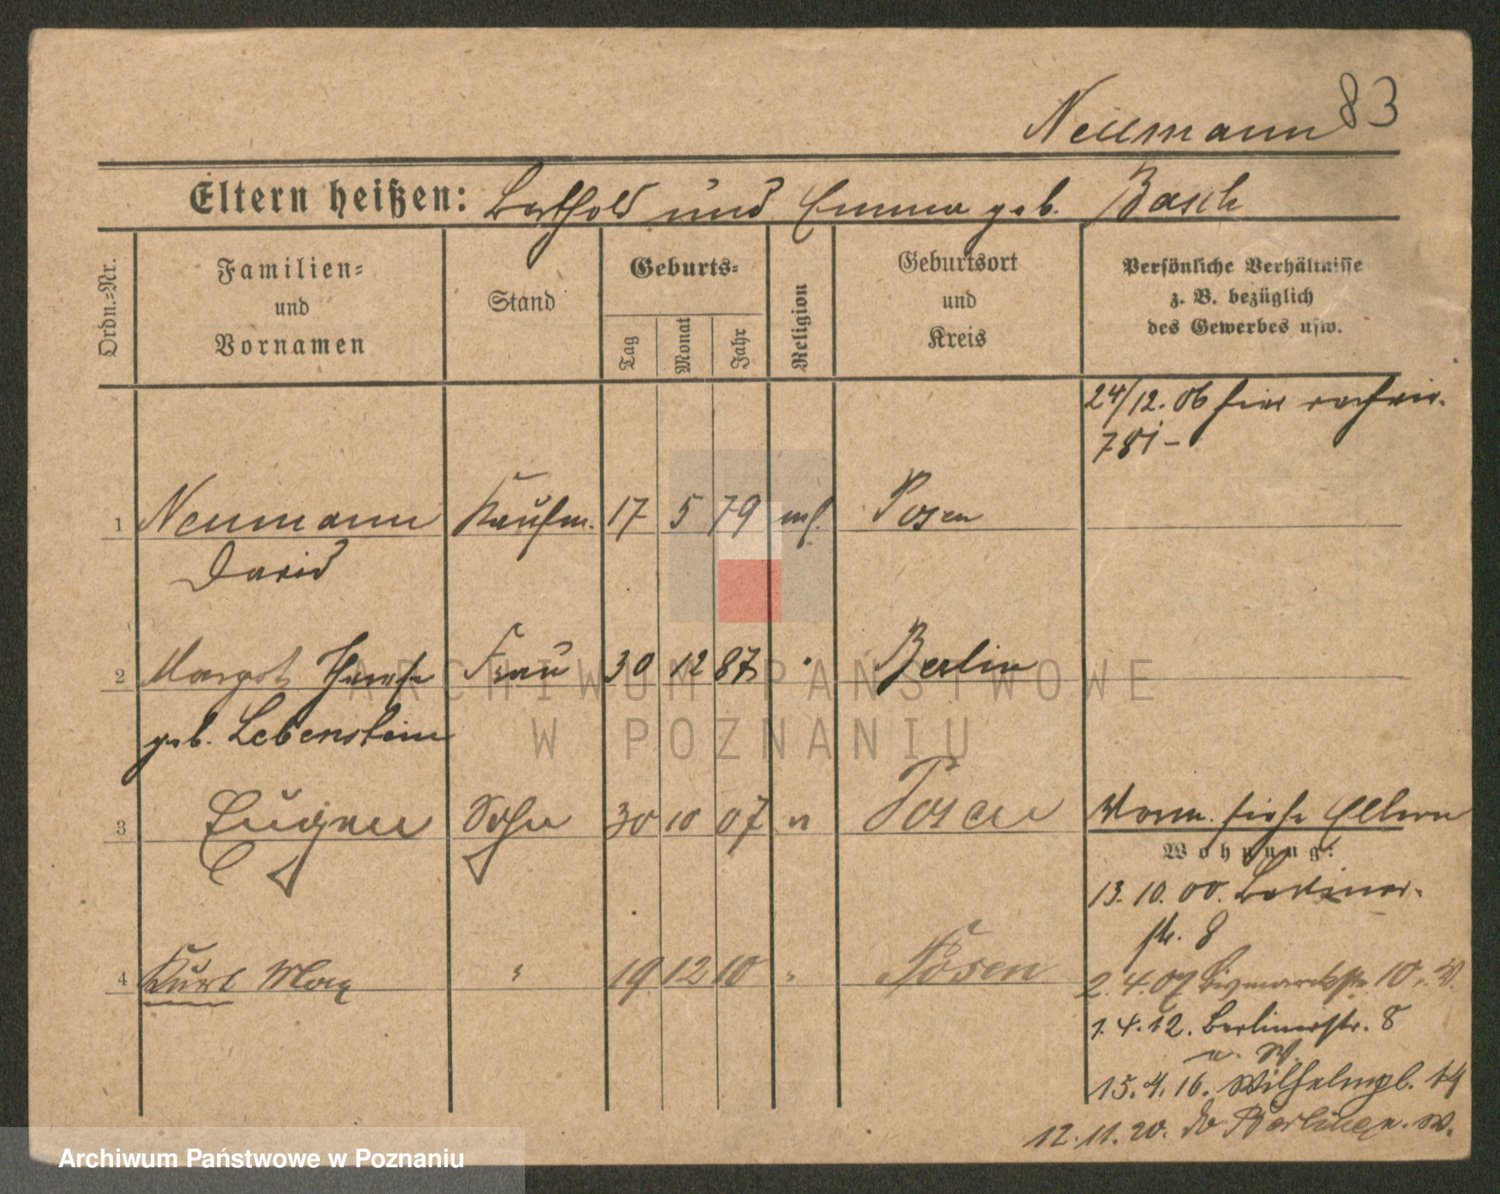 Neumann 83
Eltern heißen: Berthold und Emma geb. Basch
Ordn.=Nr.
Familien=
und
Vornamen
Stand
Geburts=
Tag
Monat
Jahr
Religion
Geburtsort
und
Kreis
Persönliche Verhältnisse
z. B. bezüglich
des Gewerbes usw.
24/12. 06 hier
781–
1 Neumann Kaufm. 17 5 79 Posen
David
2 Margot Frau 30 12 87 Berlin
geb. Lebenstein
3 Eugen Sohn 30 10 07 " Posen
siehe Eltern
Wohnung:
13. 10. 00. Berliner-
str. 8
4 Kurt Max " 19 12 10 " Posen
2. 4. 07 Bismarckstr. 10 n. W.
1. 4. 12. Berlinerstr. 8
n. W.
15. 4. 16. Wilhelmpl. 14
12. 11. 20. n. W.
ARCHIWUM PAŃSTWOWE
W POZNANIU
Archiwum Państwowe w Poznaniu